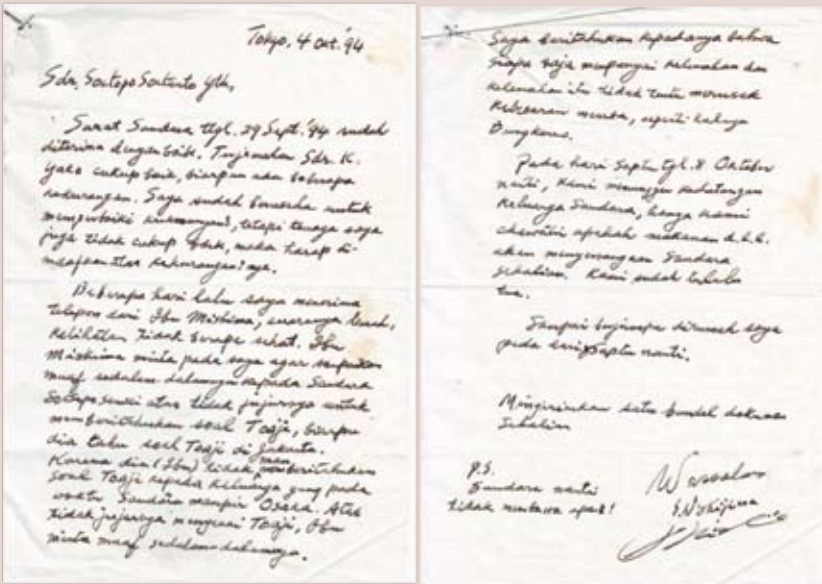 Tokyo, 4 Okt. '94
Sdr. Soetopo Soetanto Yth,
Surat Saudara ttgl. 29 Sept. '94 sudah
diterima dengan baik. Terjemahan Sdr. K.
cukup baik, biarpun ada beberapa
kekurangan. Saya sudah berusaha untuk
memperbaiki kekurangan², tetapi tenaga saya
juga tidak cukup baik, maka harap di-
maafkan atas kekurangan²nya.
Beberapa hari lalu saya menerima
telepon dari Ibu Mishima, suaranya lemah,
kelihatan tidak berapa sehat. Ibu
Mishima minta pada saya agar sampaikan
maaf sedalam-dalamnya kepada Saudara
Soetopo atas tidak jujurnya untuk
memberitahukan soal Toaji, biarpun
dia tahu soal Toaji di Jakarta.
Karena dia (Ibu) tidak memberitahukan
soal Toaji kepada keluarga yang pada
waktu Saudara mampir Osaka. Atas
tidak jujurnya mengenai Toaji, Ibu
minta maaf sedalam-dalamnya.
Saya beritahukan kepadanya bahwa
siapa saja mempunyai kelemahan dan
kelemahan itu tidak tentu merusak
kebesaran mereka, seperti halnya
Bungkarno.
Pada hari Saptu tgl. 8 Oktober
nanti, kami menunggu kedatangan
keluarga Saudara, hanya kami
chawatir apakah makanan d.l.l.
akan menyenangkan Saudara
sekalian. Kami sudah terlalu
tua.
Sampai berjumpa dirumah saya
pada hari Saptu nanti.
Mengirimkan satu bundel
Sekalian
P.S.
Saudara nanti
tidak membawa apa²!
Wassalam
S. Nishijima